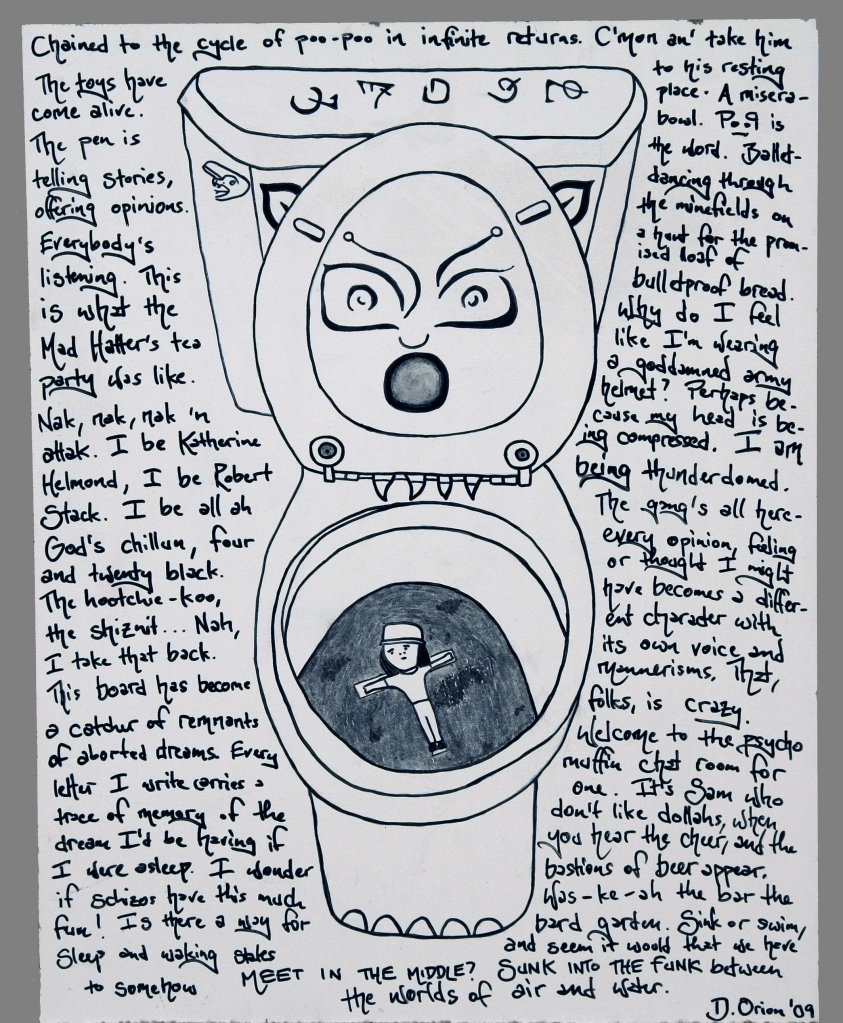 Chained to the cycle of poo-poo in infinite returns. C'mon an' take him
The toys have
come alive.
The pen is
telling stories,
offering opinions.
Everybody's
listening. This
is what the
Mad Hatter's tea
party was like.
Nak, nak, nak 'n
attak. I be Katherine
Helmond, I be Robert
Stack. I be all ah
God's chillun, four
and twenty black.
The hootchie-koo,
the shiznit... Nah,
I take that back.
This board has become
a catchur of remnants
of aborted dreams. Every
letter I write carries a
trace of memory of the
dream I'd be having if
I were asleep. I wonder
if schizos have this much
fun! Is there a way for
sleep and waking states
to somehow
to his resting
place. A misera-
bowl. Po.9 is
the word. Ballet-
dancing through
the minefields on
a hunt for the prom-
ised loaf of
bulletproof bread.
Why do I feel
like I'm wearing
a goddamned army
helmet? Perhaps be-
cause my head is be-
ing compressed. I am
being thunderdomed.
The gang's all here-
every opinion, feeling
or thought I might
have becomes a differ-
ent character with
its own voice and
mannerisms. That,
folks, is crazy.
Welcome to the psycho
muffin chat room for
one. It's Sam who
don't like dollahs, when
you hear the cheer, and the
bastions of beer appear.
Was-ke-ah the bar the
bard garden. Sink or swim,
and seem it would that we have
MEET IN THE MIDDLE? SUNK INTO THE FUNK between
the worlds of air and water.
D. Orion '09